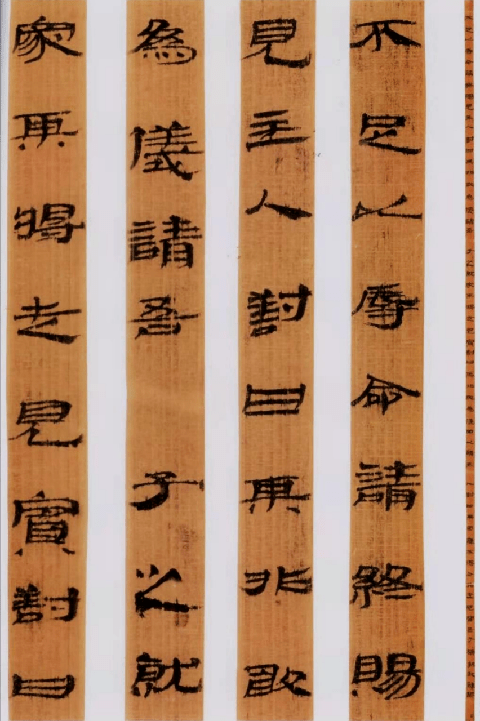 不足以辱命請終賜
見主人對曰某非敢
為儀請吾子之就
家某將走見賓對曰